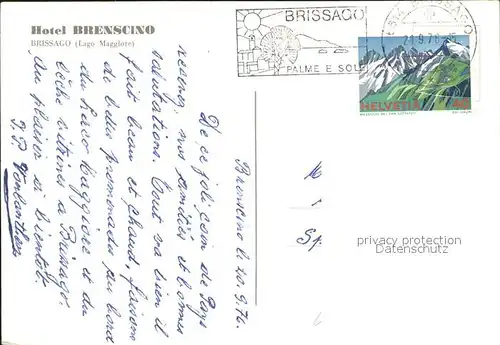 Hotel BRENSCINO
BRISSAGO (Lago Maggiore)
BRISSAGO
PALME E SOLE
BRISSAGO
21.9.76
HELVETIA
Brenscino le 20.9.76.
De ce joli coin de Pays
recevez nos amitiés et bonnes
salutations. Tout va bien il
fait beau et chaud, faisons
de belles promenades au bord
du Laco Maggiore et du
à Brissago.
Au plaisir si bientôt.
M
Sp.
privacy protection
Watermark